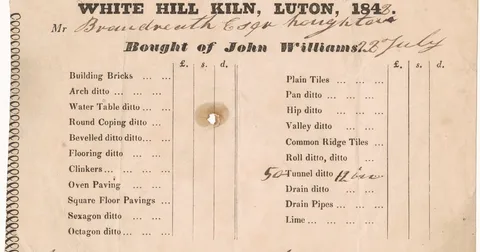 WHITE HILL KILN, LUTON, 1848.
Mr Brandreath Esqr houghton
Bought of John Williams 28 July
£. s. d.
Building Bricks ... ...
Arch ditto ... ... ...
Water Table ditto ...
Round Coping ditto ...
Bevelled ditto ditto...
Flooring ditto ...
Clinkers... ... ...
Oven Paving ...
Square Floor Pavings ...
Sexagon ditto ...
Octagon ditto ...
£. s. d.
Plain Tiles ... ...
Pan ditto ... ...
Hip ditto ... ...
Valley ditto ...
Common Ridge Tiles ...
Roll ditto, ditto ...
50 Tunnel ditto 12 in
Drain ditto ...
Drain Pipes ...
Lime ... ...